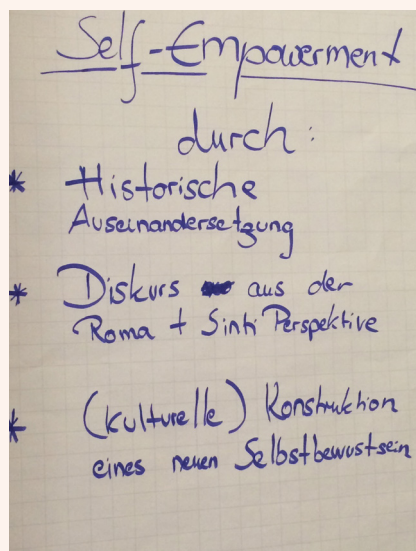 Self-Empowerment
durch:
* Historische
Auseinandersetzung
* Diskurs aus der
Roma + Sinti Perspektive
* (kulturelle) Konstruktion
eines neuen Selbstbewustsein